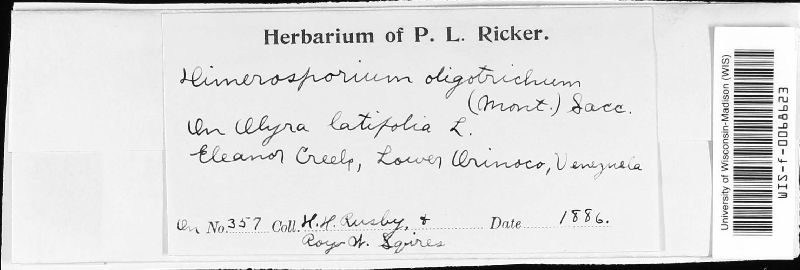 Herbarium of P. L. Ricker.
Dimerosporium oligotrichum
(Mont.) Sacc.
On Olyra latifolia L.
Eleanor Creek, Lower Orinoco, Venezuela
On No. 357 Coll. H. H. Rusby, & Date 1886.
Roy W. Squires
University of Wisconsin-Madison (WIS)
WIS-f-0068623